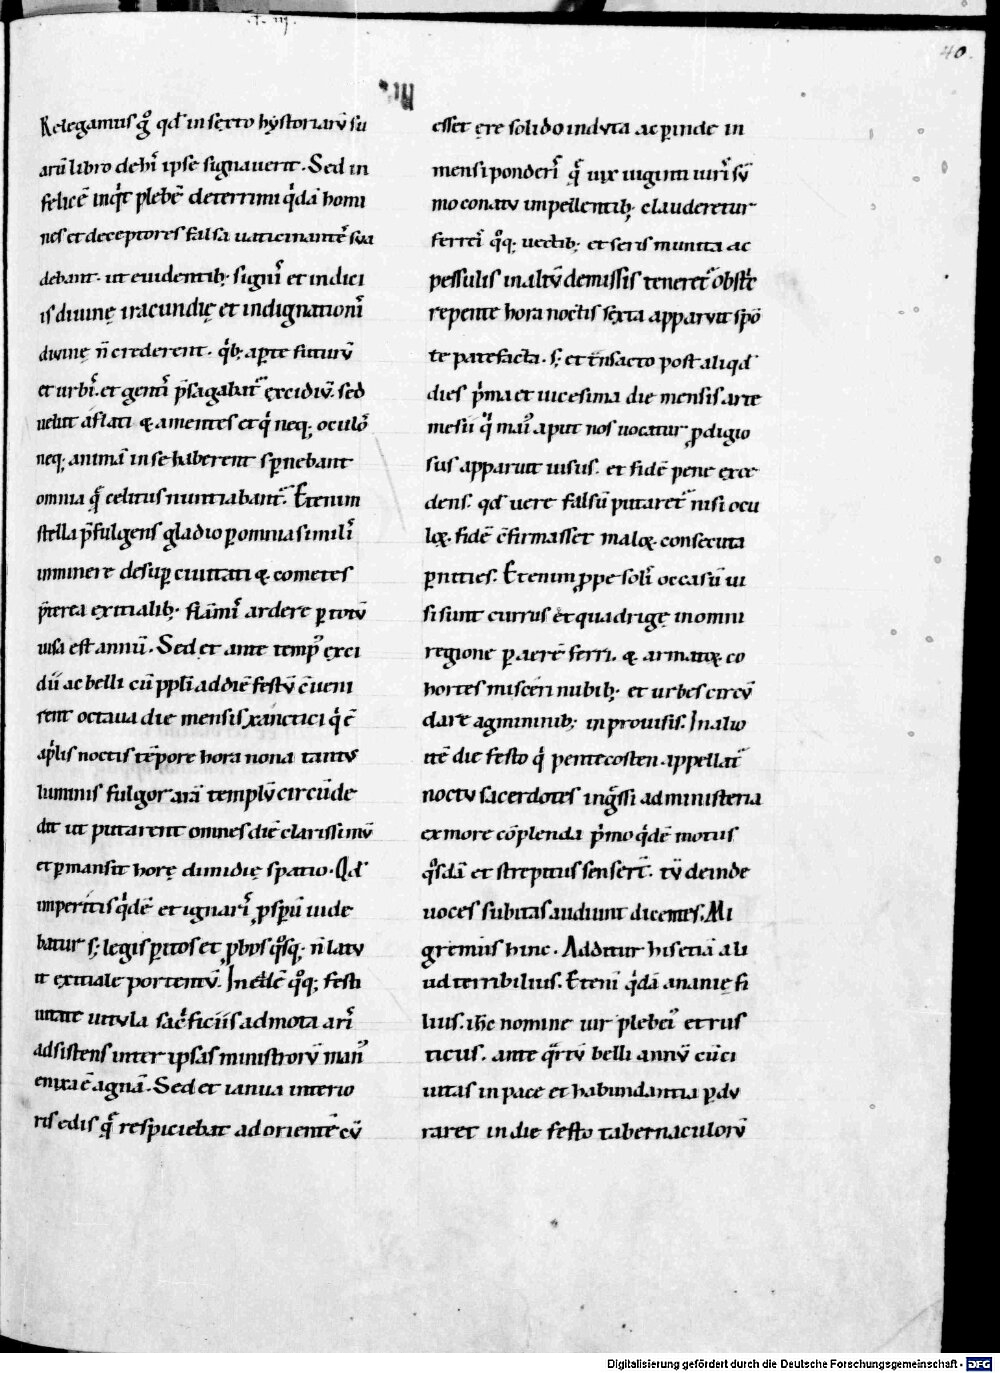 .I. iij.
40.
Relegamus g̊ qd̕ in sexto hẏstoriarū su
arū libro de hı̄ ipse signauerit. Sed in
felicē inqͥt plebē deterrimi qͥdā homi
nes et deceptores falsa uaticinantes̄ sua
debant. ut euidentib; signı̄ et indici
is diuinę iracundię et indignationı̄
diuinę n̄ crederent. qͥb; apte futurū
et urbı̄. et gentı̄ p̄sagabat᷑ excidiū. sed
uelut aflati & amentes et qͥ neq; oculos̄
neq; animā in se haberent sꝑnebant
omnia q̄ celitus nuntiabant᷑. Etenim
stella p̄fulgens gladio ꝑ omnia similı̄
imminere desuꝑ ciuitati & cometes
p̄terea exitialib; flāmı̄ ardere ꝑ totū
uisa est annū. Sed et ante temp᷒ exci
dii ac belli cū ppl̄i ad diē festū c̄ueni
rent octaua die mensis xanctici qͥ ē
apͥlis noctis tēpore hora nona tantus
luminis fulgor arā templū circūde
dit ut putarent omnes diē clarissimū
et ꝑmansit horę dimidię spatio. Qd̕
imperitis qͥdē et ignarı̄ ꝓspū uide
batur s; legis ꝑitos et ꝓbos qͦsq; n̄ latu
it exitiale portentū. In ead̄ē qͦq; festi
uitate uitula sacͥficiis admota arı̄
adsistens inter ipsas ministrorū man᷒
enixa ē agnā. Sed et ianua interio
ris edis q̄ respiciebat ad orientē cū
esset ęre solido induta ac ꝑinde in
mensi ponderı̄ q̄ uix uiginti uirı̄ sū
mo conatu impellentib; clauderetur
ferreı̄ qͦq; uectib; et seris munita ac
pessulis in altū demissis teneret᷑ obstͥc
repente hora noctis sexta apparuit spō
te patefacta. s; et tͣnsacto post aliqd̕
dies pͥma et uicesima die mensis arte
mesii qͥ mai᷒ aput nos uocatur ꝓdigio
sus apparuit uisus. et fidē pene exce
dens. qd̕ uere falsū putaret᷑ nisi ocu
loꝝ fidē c̄firmasset maloꝝ consecuta
ꝑnities. Etenim ꝓpe solı̄ occasū ui
si sunt currus et quadrigę in omni
regione ꝑ aerē ferri. & armatoꝝ co
hortes misceri nubib; et urbes circū
dare agminib; inprouisis. In alio
itē die festo qͥ pentecosten appellat᷑
noctu sacerdotes ingͤssi ad ministeria
ex more cōplenda pͥmo qͥdē motus
qͦsdā et strepitus senserı̄t. tū deinde
uoces subitas audiunt dicentes. Mi
gremus hinc. Additur his etiā ali
ud terribilius. Etenī qͥdā ananię fi
lius. ih̄c nomine uir plebei᷒ et rus
ticus. ante qͣrtū belli annū cū ci
uitas in pace et habundantia ꝑdu
raret in die festo tabernaculorū
Digitalisierung gefördert durch die Deutsche Forschungsgemeinschaft - DFG